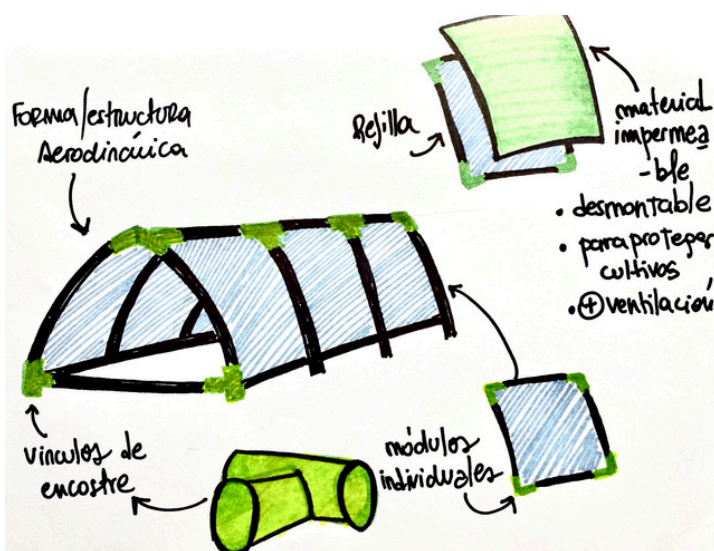 Forma/estructura
Aerodinámica
Rejilla
material
impermea
-ble
• desmontable
• para proteger
cultivos
• + ventilación
vínculos de
encastre
módulos
individuales